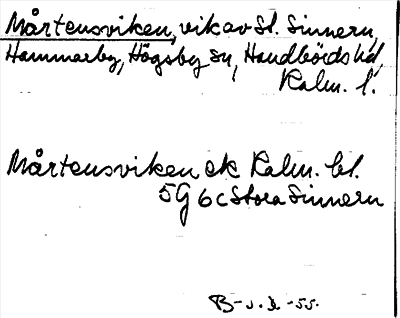 Mårtensviken, vik av St. Sinnern,
Hammarby, Högsby sn, Handbörds hd,
Kalm. l.
Mårtensviken ek Kalm. bl.
5G 6c Stora Sinnern
B-s. -55.